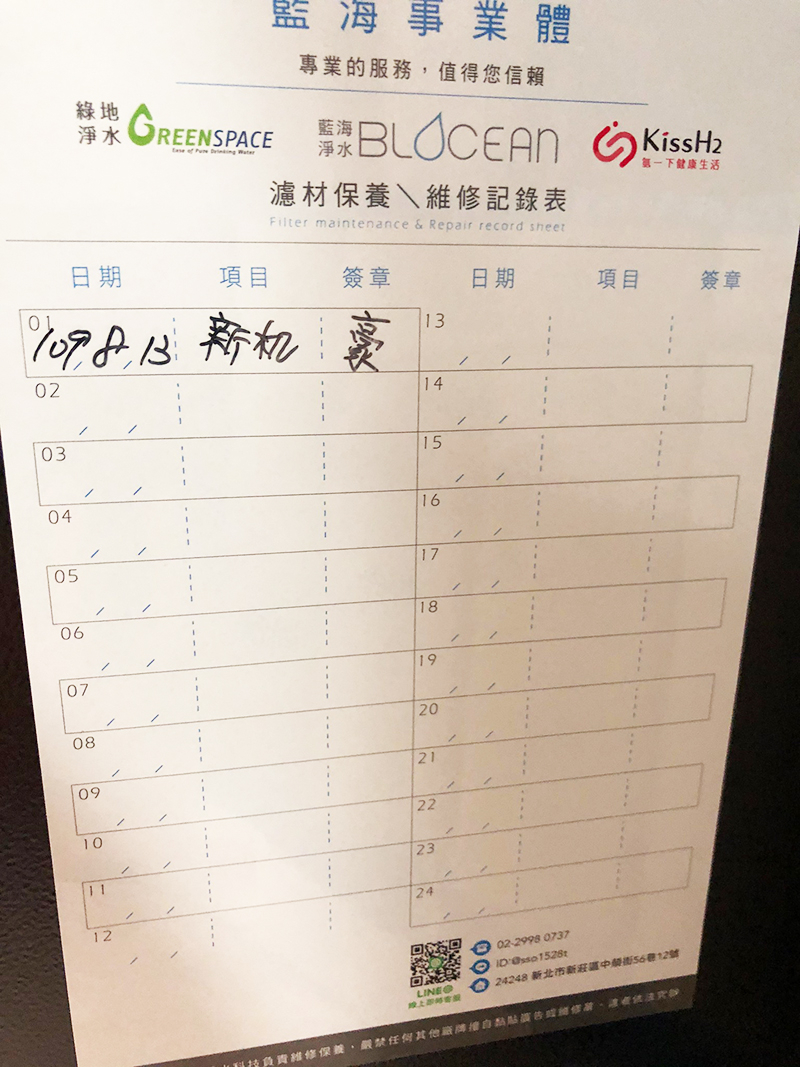 藍海事業體
專業的服務，值得您信賴
綠地淨水 GREENSPACE
Ease of Pure Drinking Water
藍海淨水 BLOCEAN
KissH2
氫一下健康生活
濾材保養＼維修記錄表
Filter maintenance & Repair record sheet
日期 項目 簽章 日期 項目 簽章
01 109/8/13 新机 豪 13 / /
02 / / 14 / /
03 / / 15 / /
04 / / 16 / /
05 / / 17 / /
06 / / 18 / /
07 / / 19 / /
08 / / 20 / /
09 / / 21 / /
10 / / 22 / /
11 / / 23 / /
12 / / 24 / /
LINE@
線上即時客服
02-2998 0737
ID:@sso1528t
24248 新北市新莊區中榮街56巷12號
科技負責維修保養，嚴禁任何其他廠牌擅自黏貼廣告或維修單，違者依法究辦